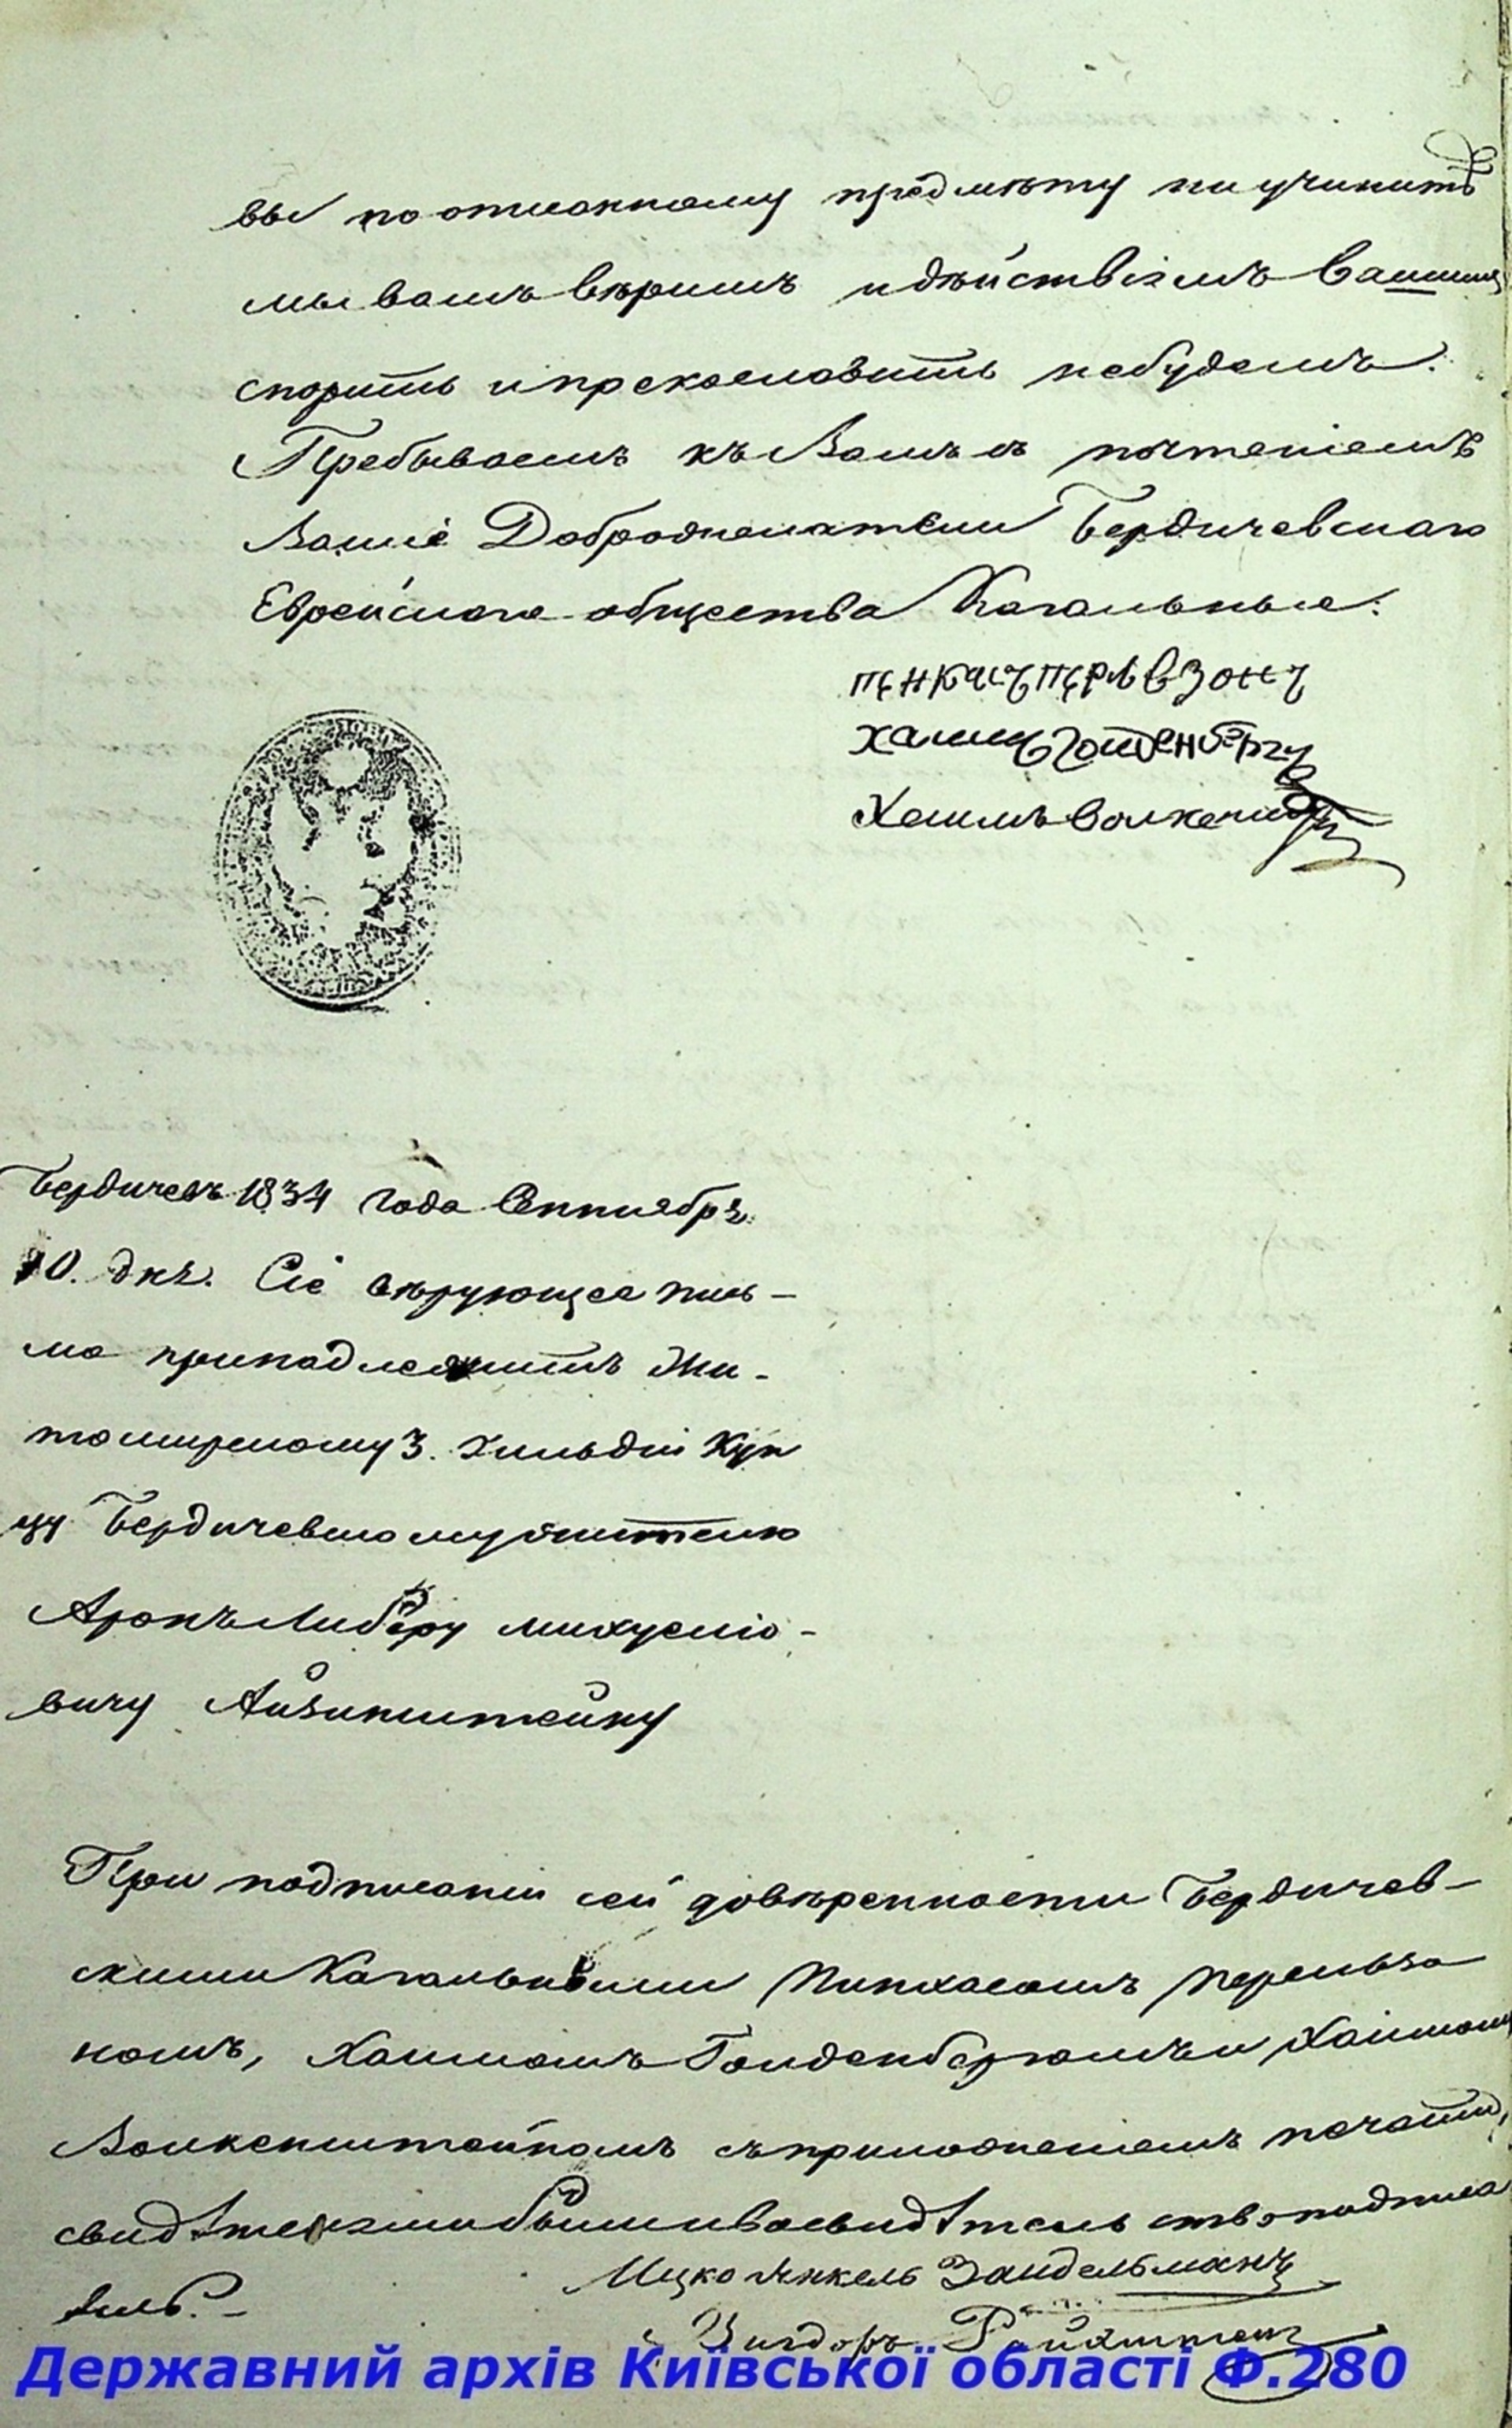 вы по описанному предмѣту ни учините
мы вамъ вѣримъ и дѣйствіямъ вашимъ
спорить и прекословить небудемъ.
Пребываемъ къ Вамъ съ почтеніемъ
Вашіе Доброжелатели Бердичевскаго
Еврейскаго общества Кагальные:
Хаимъ Голденбергъ
Хаимъ Волкенштейнъ
Бердичевъ 1834 года Сентября
10. дня. Сіе вѣрующее пись-
мо принадлежитъ Жи-
томирскому 3. гильдіи Куп
цу Бердичевскому жителю
Аронъ Либеру
вичу Айзинштейну
При подписаніи сей довѣренности Бердичев-
скими Кагальными Пинхасомъ Перельзо
номъ, Хаимомъ Голденбергомъ и Хаимомъ
Волкенштейномъ съ приложеніемъ печати,
свидѣтелями были и во свидѣтельство подписа
лись.
Ицко Янкель Зандельманъ
Державний архів Київської області Ф.280